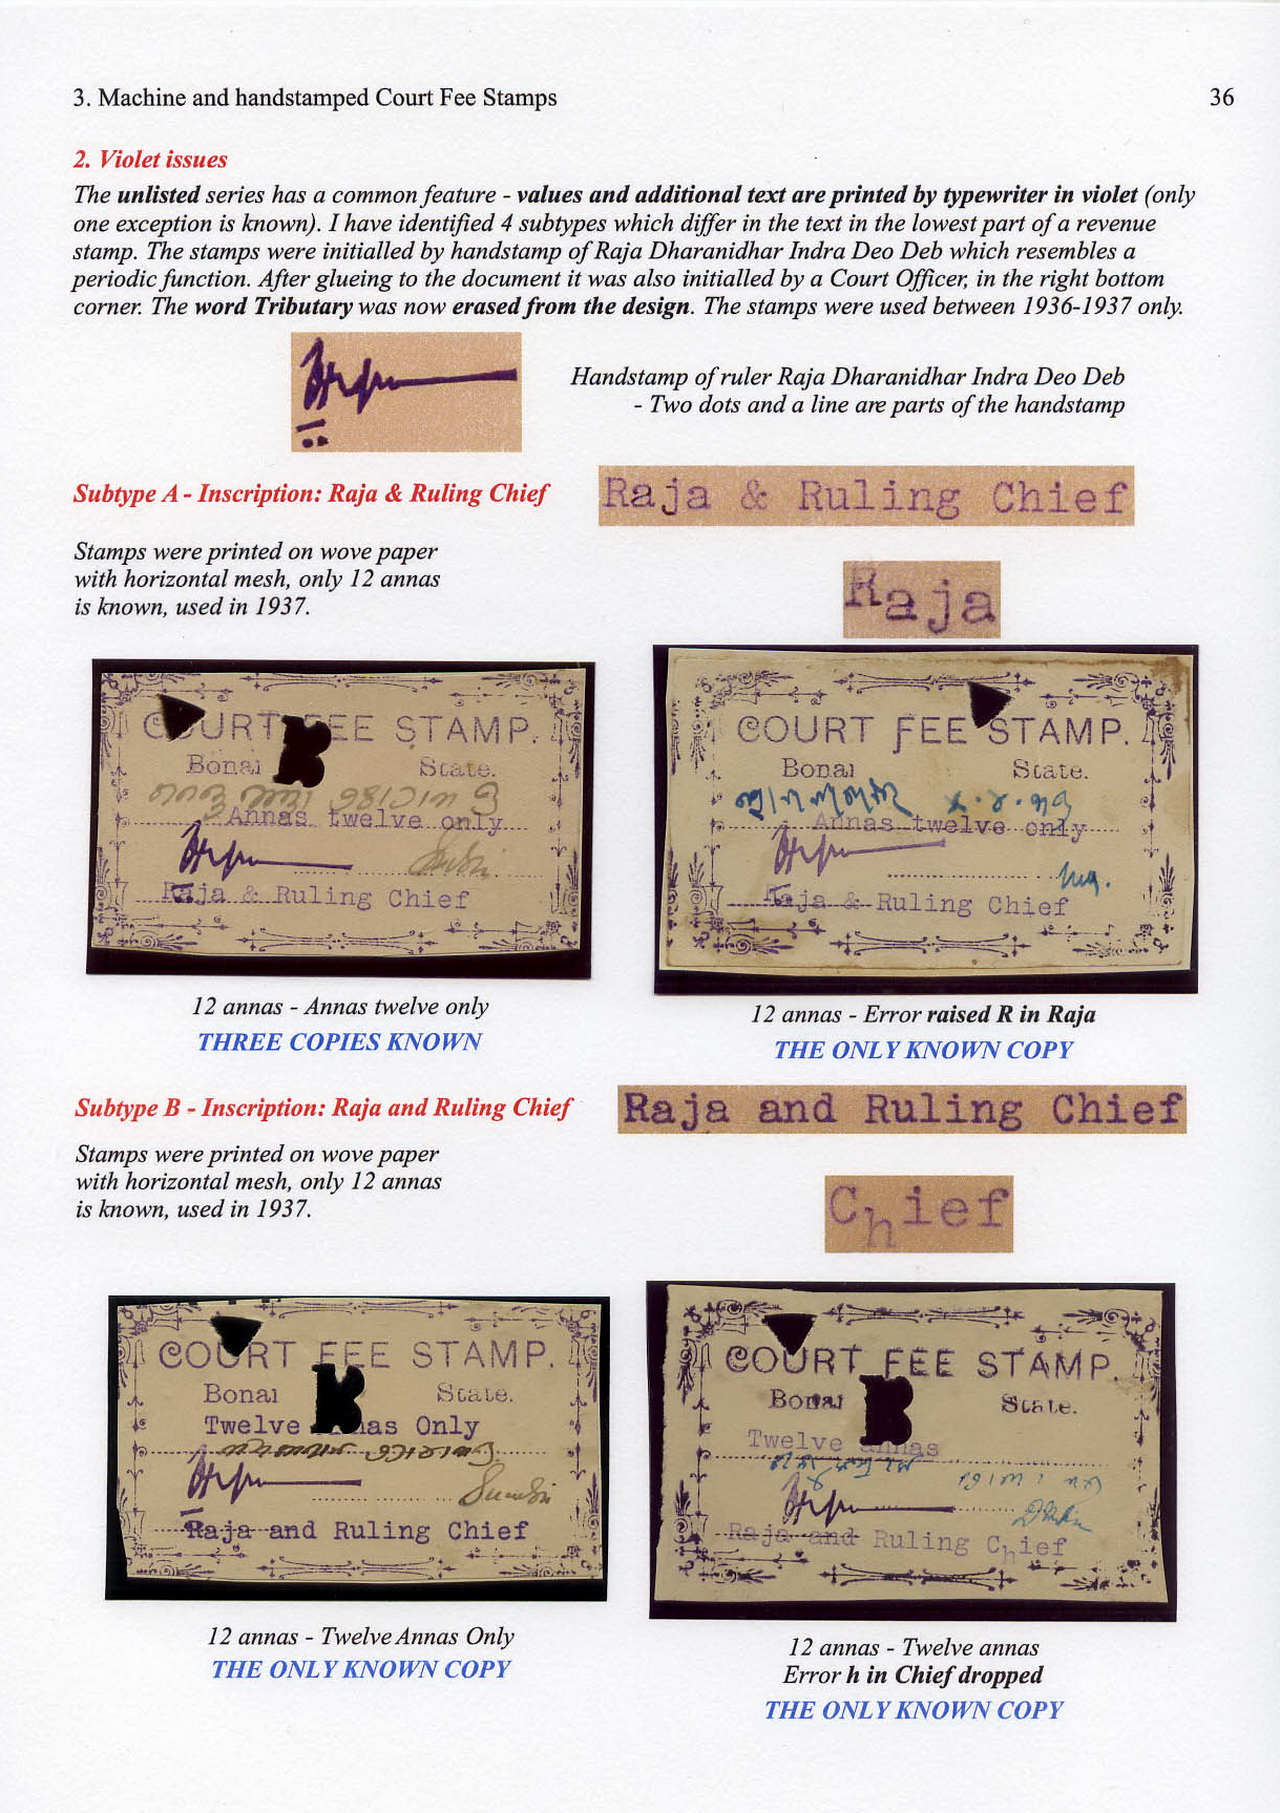 3. Machine and handstamped Court Fee Stamps
36
2. Violet issues
The unlisted series has a common feature - values and additional text are printed by typewriter in violet (only
one exception is known). I have identified 4 subtypes which differ in the text in the lowest part of a revenue
stamp. The stamps were initialled by handstamp of Raja Dharanidhar Indra Deo Deb which resembles a
periodic function. After glueing to the document it was also initialled by a Court Officer, in the right bottom
corner. The word Tributary was now erased from the design. The stamps were used between 1936-1937 only.
Handstamp of ruler Raja Dharanidhar Indra Deo Deb
- Two dots and a line are parts of the handstamp
Subtype A - Inscription: Raja & Ruling Chief
Raja & Ruling Chief
Stamps were printed on wove paper
with horizontal mesh, only 12 annas
is known, used in 1937.
Raja
COURT FEE STAMP.
Bonai State.
Annas twelve only
Raja & Ruling Chief
COURT FEE STAMP.
Bonai State.
Annas twelve only
Raja & Ruling Chief
12 annas - Annas twelve only
THREE COPIES KNOWN
12 annas - Error raised R in Raja
THE ONLY KNOWN COPY
Subtype B - Inscription: Raja and Ruling Chief
Raja and Ruling Chief
Stamps were printed on wove paper
with horizontal mesh, only 12 annas
is known, used in 1937.
Chief
COURT FEE STAMP.
Bonai State.
Twelve Annas Only
Raja and Ruling Chief
COURT FEE STAMP.
Bonai State.
Twelve annas
Raja and Ruling Chief
12 annas - Twelve Annas Only
THE ONLY KNOWN COPY
12 annas - Twelve annas
Error h in Chief dropped
THE ONLY KNOWN COPY